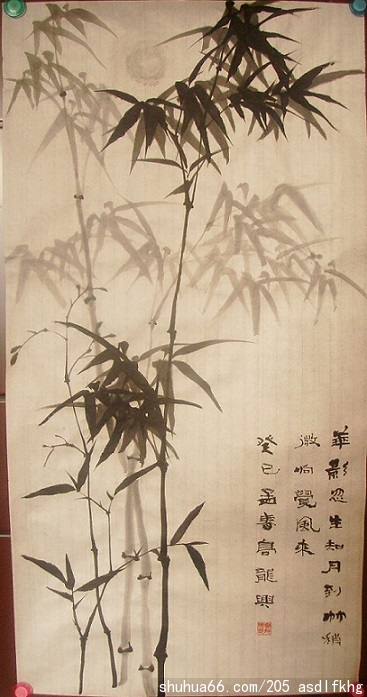 華影忽生知月到竹梢
微响覺風來
癸巳孟春高龍興
shuhua66.com/205 asdlfkhg